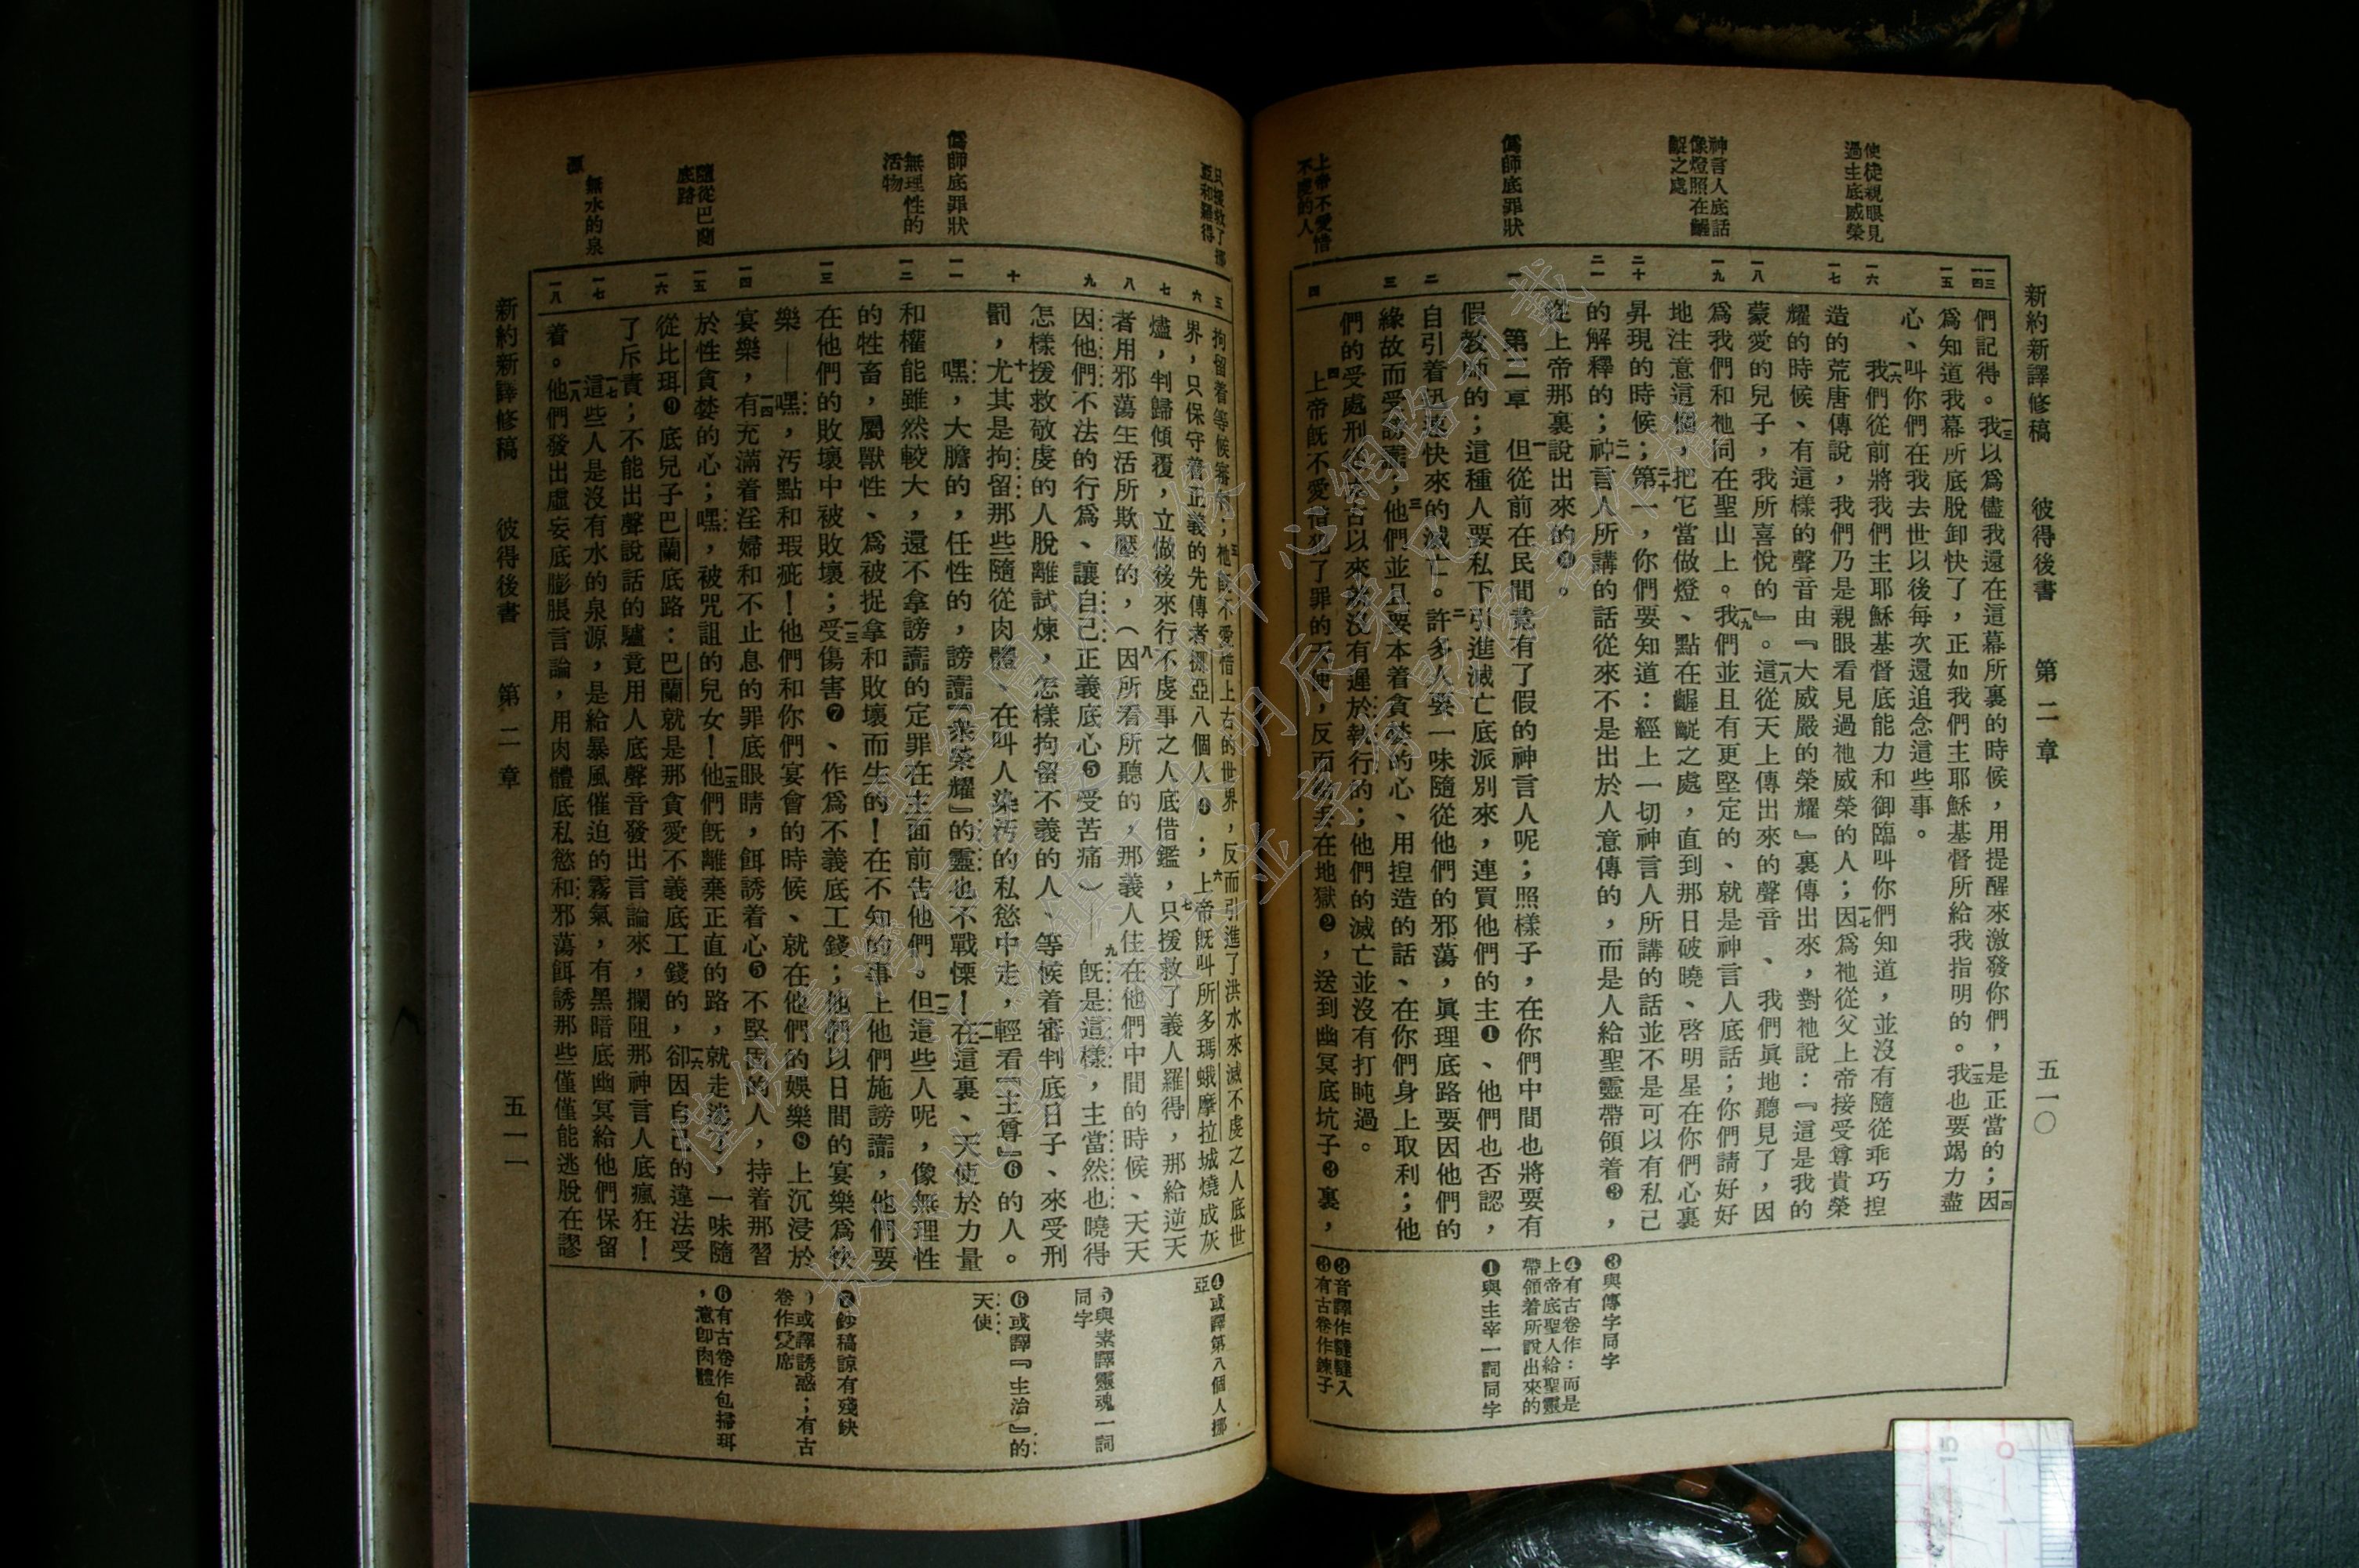 新約新譯修稿 彼得後書 第二章 五一〇
使徒親眼見
過主底威榮
神言人底話
像燈照在齷
齪之處
僞師底罪狀
上帝不愛惜
不虔的人
們記得。一三我以爲儘我還在這幕所裏的時候,用提醒來激發你們,是正當的;一四因
爲知道我幕所底脫卸快了,正如我們主耶穌基督所給我指明的。一五我也要竭力盡
心、叫你們在我去世以後每次還追念這些事。
一六我們從前將我們主耶穌基督底能力和御臨叫你們知道,並沒有隨從乖巧揑
造的荒唐傳說,我們乃是親眼看見過祂威榮的人;一七因爲祂從父上帝接受尊貴榮
耀的時候、有這樣的聲音由『大威嚴的榮耀』裏傳出來,對祂說:『這是我的
蒙愛的兒子,我所喜悅的』。一八這從天上傳出來的聲音、我們眞地聽見了,因
爲我們和祂同在聖山上。一九我們並且有更堅定的、就是神言人底話;你們請好好
地注意這個,把它當做燈、點在齷齪之處,直到那日破曉、啓明星在你們心裏
昇現的時候;二十第一,你們要知道:經上一切神言人所講的話並不是可以有私己
的解釋的;二一神言人所講的話從來不是出於人意傳的,而是人給聖靈帶領着❸,
從上帝那裏說出來的❹。
第二章 一但從前在民間竟有了假的神言人呢;照樣子,在你們中間也將要有
假教師的;這種人要私下引進滅亡底派別來,連買他們的主❶、他們也否認,
自引着迅速快來的滅亡。二許多人要一味隨從他們的邪蕩,眞理底路要因他們的
緣故而受謗讟;三他們並且要本着貪婪的心、用揑造的話、在你們身上取利;他
們的受處刑從古以來就沒有遲於執行的;他們的滅亡並沒有打盹過。
四上帝旣不愛惜犯了罪的天使,反而丟在地獄❷,送到幽冥底坑子❸裏,
❸與傳字同字
❹有古卷作:而是
上帝底聖人給聖靈
帶領着所說出來的
❶與主宰一詞同字
❸有古卷作鍊子
新約新譯修稿 彼得後書 第二章 五一一
只援救了挪
亞和羅得
僞師底罪狀
無理性的
活物
隨從巴蘭
底路
無水的泉
源
拘留着等候審判;五祂旣不愛惜上古的世界,反而引進了洪水來滅不虔之人底世
界,只保守着正義的先傳者挪亞八個人❹;六上帝旣叫所多瑪蛾摩拉城燒成灰
燼,判歸傾覆,立做後來行不虔事之人底借鑑,七只援救了義人羅得,那給逆天
者用邪蕩生活所欺壓的,(八因所看所聽的,那義人住在他們中間的時候、天天
因他們不法的行爲、讓自己正義底心❺受苦痛)——九旣是這樣,主當然也曉得
怎樣援救敬虔的人脫離試煉,怎樣拘留不義的人、等候着審判底日子、來受刑
罰,十尤其是拘留那些隨從肉體、在叫人染汚的私慾中走,輕看『主尊』❻的人。
嘿,大膽的,任性的,謗讟『衆榮耀』的靈也不戰慄!一一在這裏、天使於力量
和權能雖然較大,還不拿謗讟的定罪在主面前告他們。一二但這些人呢,像無理性
的牲畜,屬獸性、爲被捉拿和敗壞而生的!在不知的事上他們施謗讟,他們要
在他們的敗壞中被敗壞;一三受傷害❼、作爲不義底工錢;他們以日間的宴樂爲快
樂——嘿,汚點和瑕疵!他們和你們宴會的時候、就在他們的娛樂❽上沉浸於
宴樂,一四有充滿着淫婦和不止息的罪底眼睛,餌誘着心❺不堅固的人,持着那習
於性貪婪的心;嘿,被咒詛的兒女!一五他們旣離棄正直的路,就走迷了,一味隨
從比珥❾底兒子巴蘭底路:巴蘭就是那貪愛不義底工錢的,一六卻因自己的違法受
了斥責;不能出聲說話的驢竟用人底聲音發出言論來,攔阻那神言人底瘋狂!
一七這些人是沒有水的泉源,是給暴風催迫的霧氣,有黑暗底幽冥給他們保留
着。一八他們發出虛妄底膨脹言論,用肉體底私慾和邪蕩餌誘那些僅僅能逃脫在謬
❹或譯第八個人挪
亞
❺與素譯靈魂一詞
同字
❻或譯『主治』的
天使
❼鈔稿諒有殘缺
或譯誘惑;有古
卷作愛席
有古卷作包掃珥
,意卽肉體